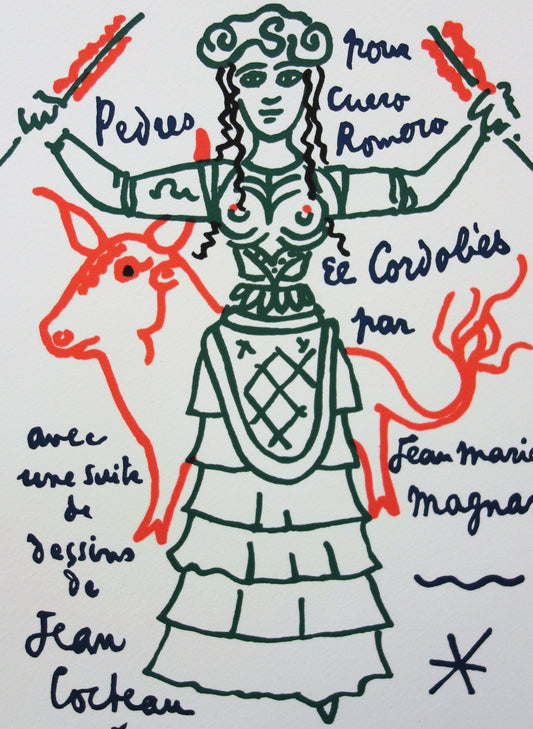 Pedres
pour
Curro
Romero
El Cordobès
par
Jean Marie
Magna
avec
une suite
de
dessins
de
Jean
Cocteau